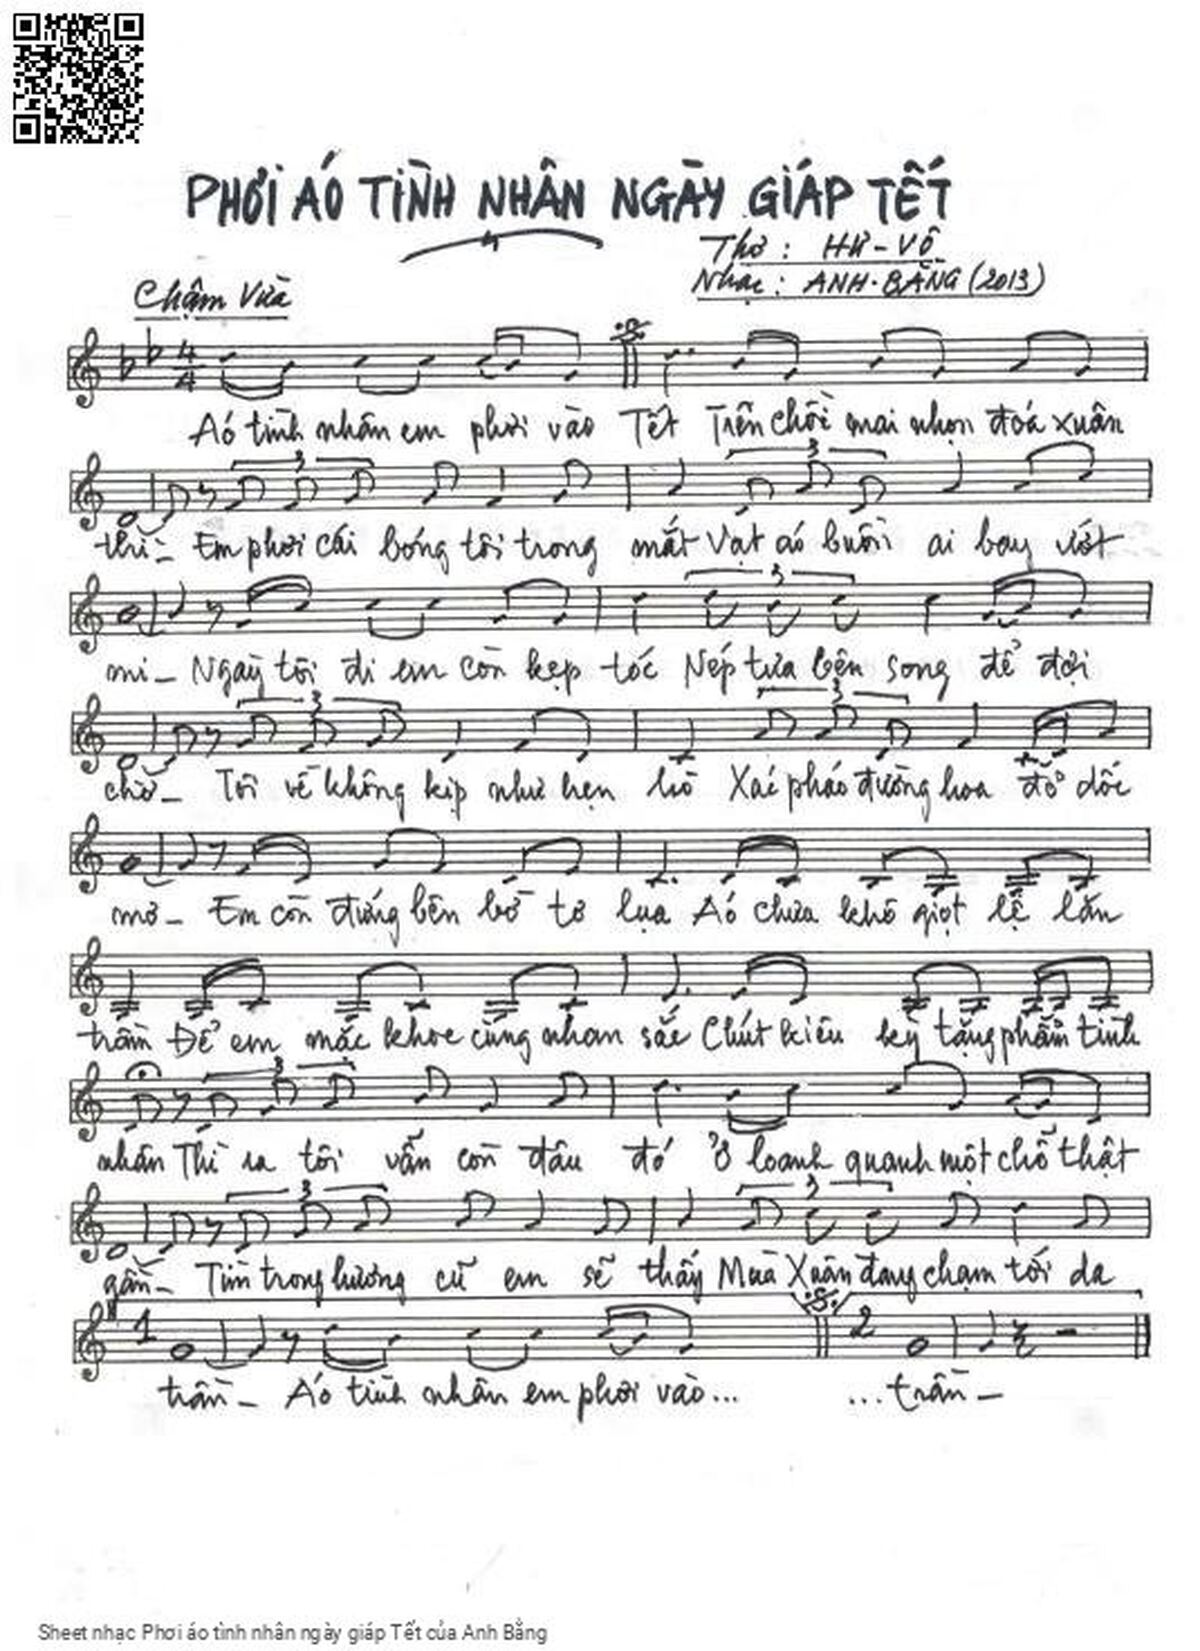 PHƠI ÁO TÌNH NHÂN NGÀY GIÁP TẾT
Thơ: HƯ-VÔ
Nhạc: ANH-BẰNG (2013)
Chậm Vừa
Áo tình nhân em phơi vào Tết Trên chồi mai nhọn đoá xuân
thì- Em phơi cái bóng tôi trong mắt Vạt áo buồn ai bay ướt
mi- Ngày tôi đi em còn kẹp tóc Nép tựa bên song để đợi
chờ- Tôi về không kịp như hẹn hò Xác pháo đường hoa đỏ dốc
mơ- Em còn đứng bên bờ tơ lụa Áo chưa khô giọt lệ lăn
trầm Để em mặc khoe cùng nhan sắc Chút kiêu kỳ tặng phẩm tình
nhân Thì ra tôi vẫn còn đâu đó Ở loanh quanh một chỗ thật
gần- Tìm trong hương cũ em sẽ thấy Mùa Xuân đang chạm tới da
1 2
trần- Áo tình nhân em phơi vào... ...trần-
Sheet nhạc Phơi áo tình nhân ngày giáp Tết của Anh Bằng